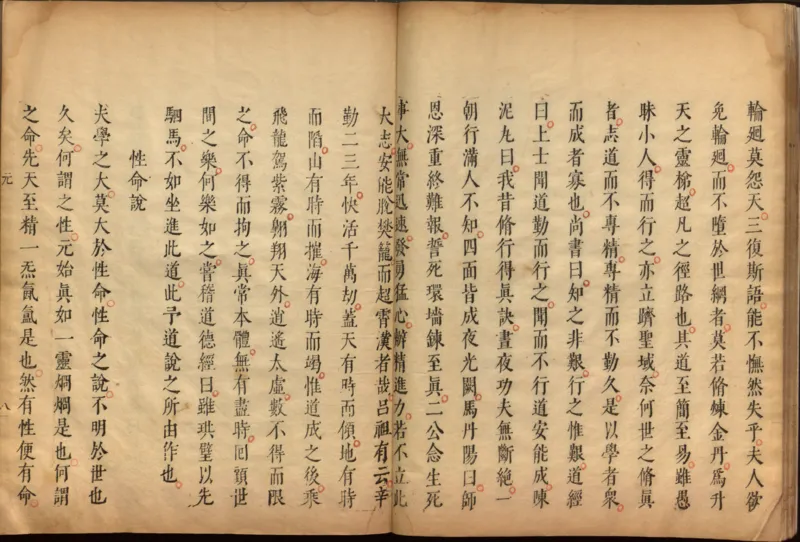 輪廻莫怨天三復斯語能不憮然失乎夫人欲
免輪廻而不墮於世網者莫若脩煉金丹爲升
天之靈梯超凡之徑路也其道至簡至易雖愚
昧小人得而行之亦立躋聖域奈何世之脩眞
者志道而不專精專精而不勤久是以學者衆
而成者寡也尚書曰知之非艱行之惟艱道經
曰上士聞道勤而行之聞而不行道安能成陳
泥丸曰我昔脩行得眞訣晝夜功夫無斷絕一
朝行滿人不知四面皆成夜光闕馬丹陽曰師
恩深重終難報誓死環墻鍊至眞二公念生死
事大無常迅速發勇猛心辦精進力若不立此
大志安能脫樊籠而超霄漢者哉呂祖有云辛
勤二三年快活千萬劫蓋天有時而傾地有時
而陷山有時而摧海有時而竭惟道成之後乘
飛龍駕紫霧翺翔天外逍遙太虛數不得而限
之命不得而拘之眞常本體無有盡時回頭世
間之樂何樂如之嘗稽道德經曰雖珙璧以先
駟馬不如坐進此道此予道說之所由作也
性命說
夫學之大莫大於性命性命之說不明於世也
久矣何謂之性元始眞如一靈烱烱是也何謂
之命先天至精一炁氤氳是也然有性便有命
元
八